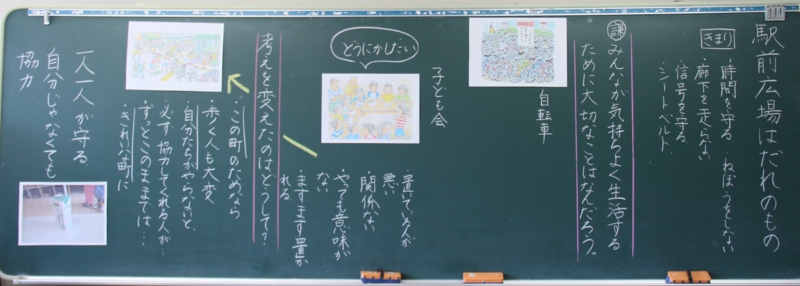 駅前広場はだれのもの
きまり
・時間を守る ねぼうをしない
・廊下を走らない
・信号を守る
・シートベルト
課 みんなが気持ちよく生活する
ために大切なことはなんだろう。
自転車
子ども会
どうにかしたい
・置いている人が
悪い
・関係ない
・やっても意味が
ない
・ますます置か
れる
考えを変えたのはどうして?
・この町のためなら
・歩く人も大変
・自分たちがやらないと
・必ず協力してくれる人が…
・ずっとこのままでは…
・きれいな町に
一人一人が守る
自分じゃなくても
協力